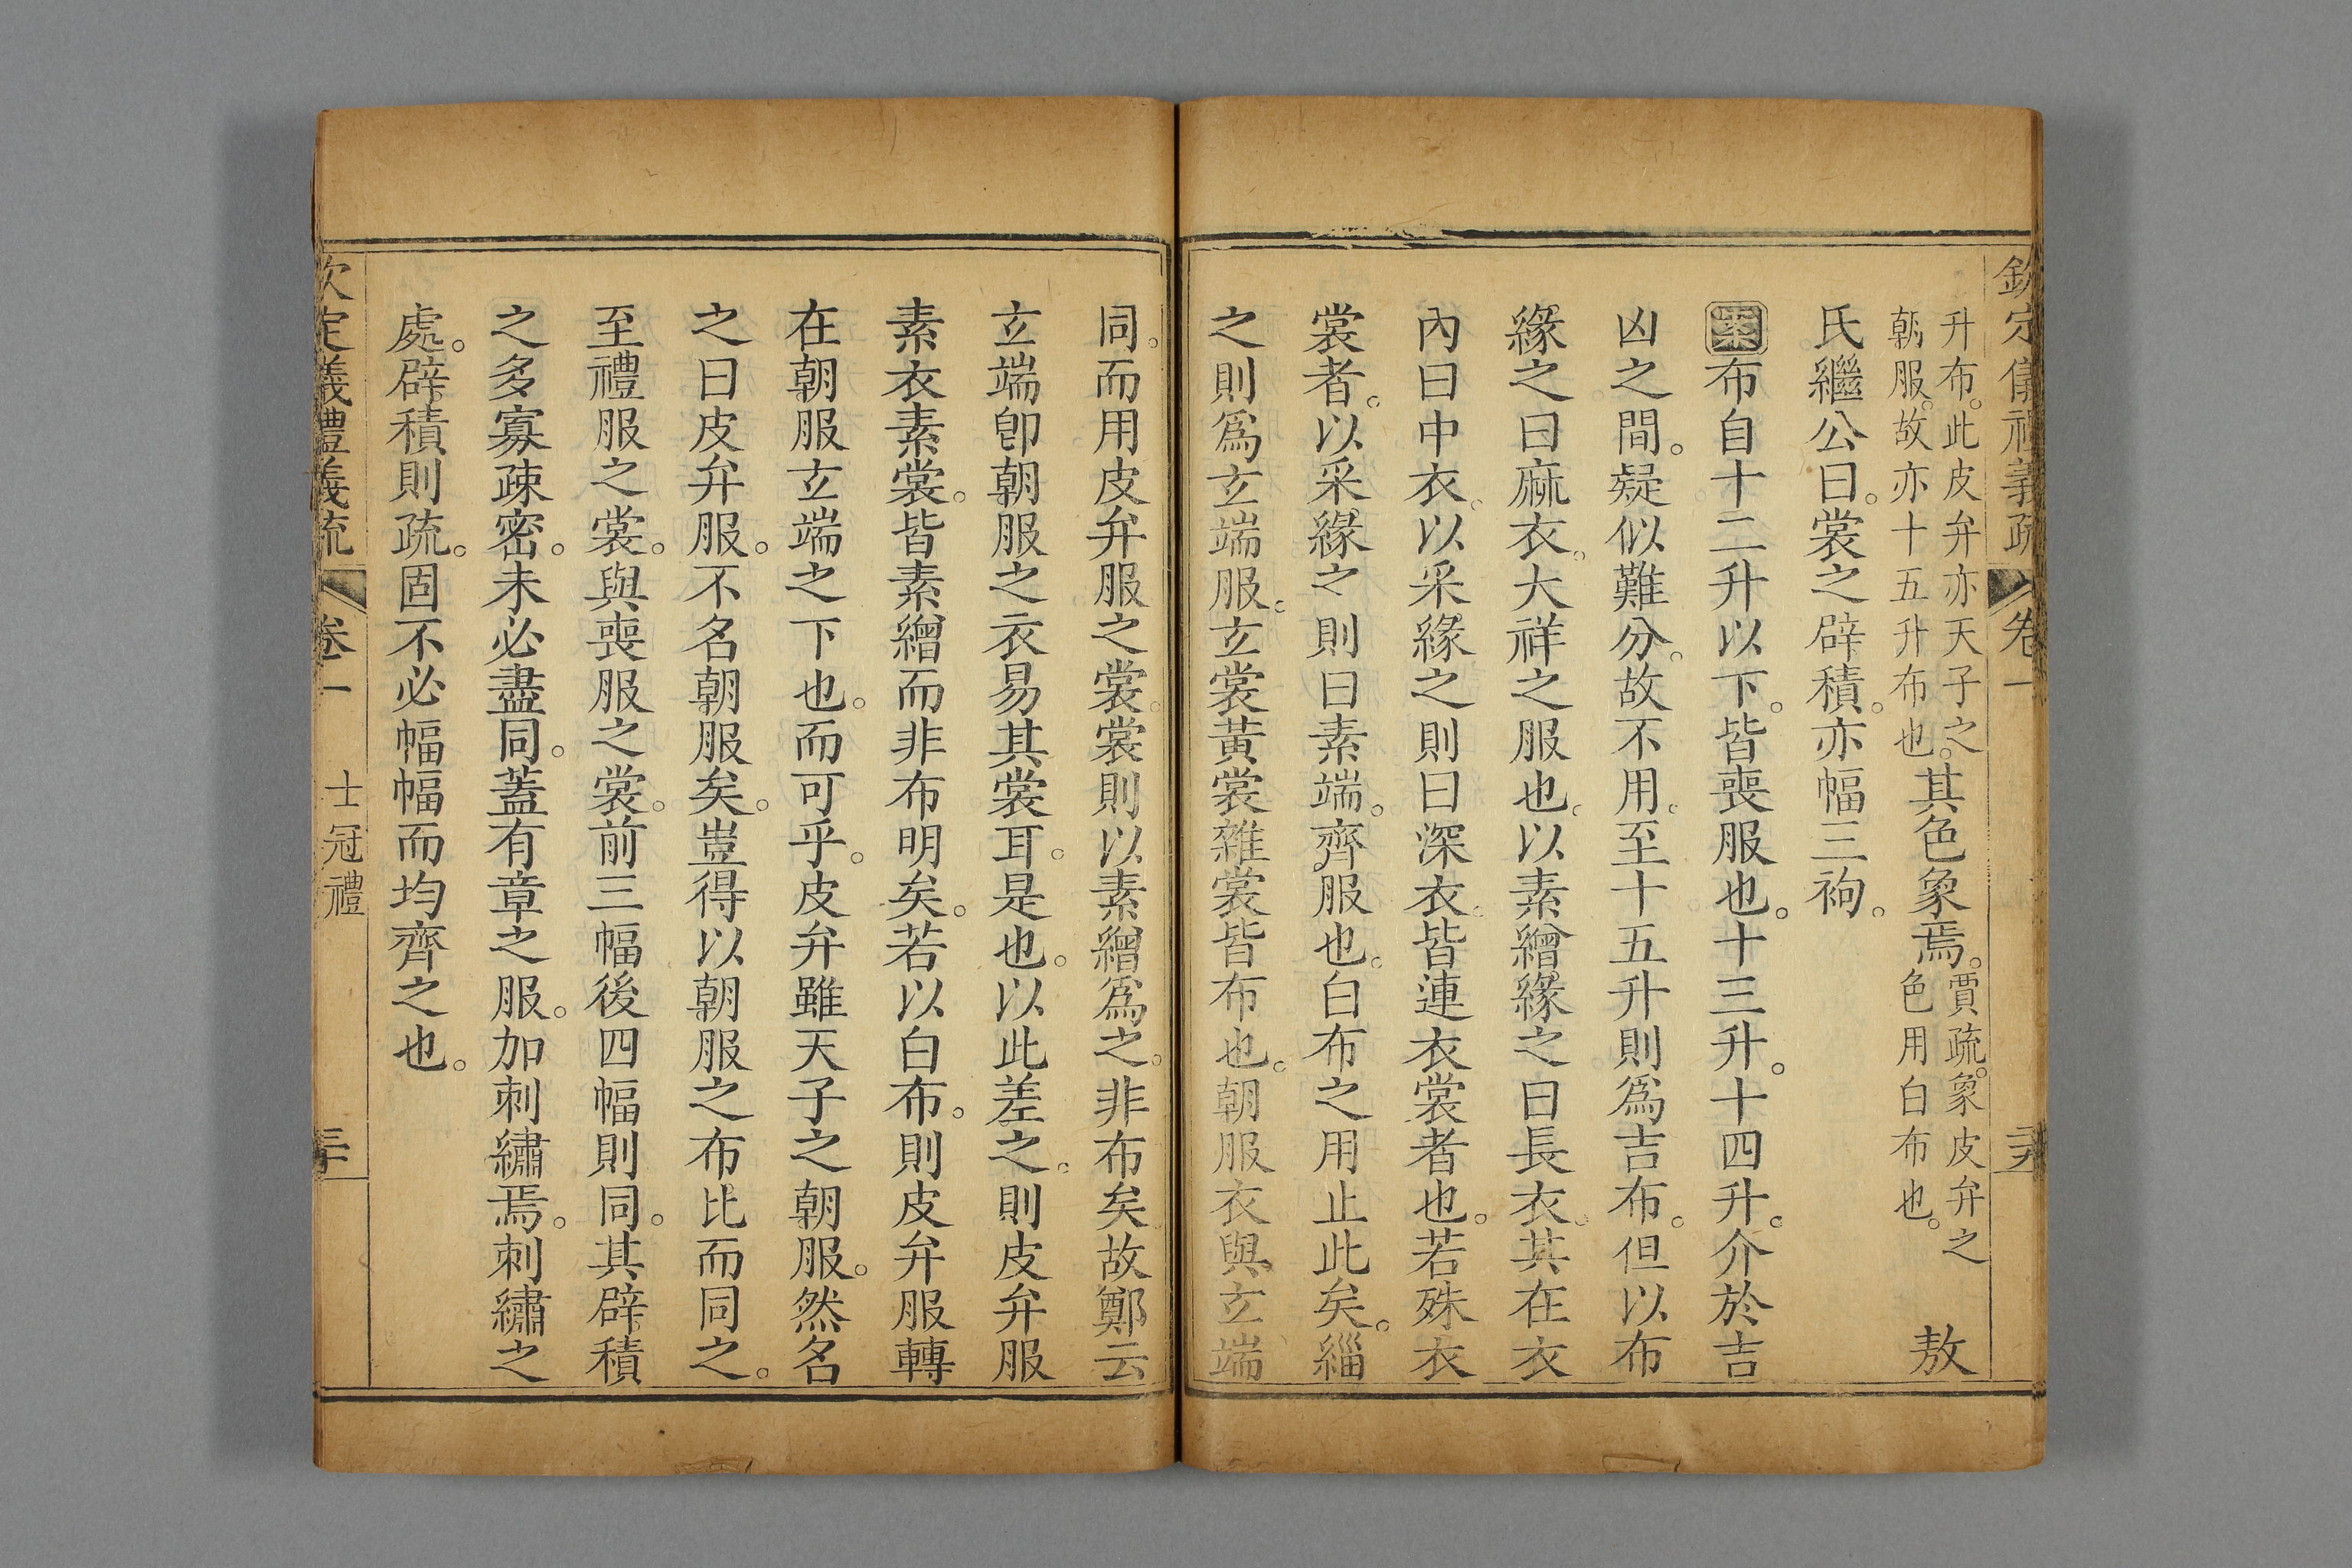 欽定儀禮義疏 卷一
升布。此皮弁亦天子之
朝服。故亦十五升布也。
其色象焉。
賈疏。象皮弁之
色用白布也。
敖
氏繼公曰。裳之辟積。亦幅三袧。
案布自十二升以下。皆喪服也。十三升。十四升。介於吉
凶之間。疑似難分。故不用。至十五升則爲吉布。但以布
緣之曰麻衣。大祥之服也。以素繒緣之曰長衣。其在衣
內曰中衣。以采緣之則曰深衣。皆連衣裳者也。若殊衣
裳者。以采緣之則曰素端。齊服也。白布之用止此矣。緇
之則爲玄端服。玄裳黃裳雜裳皆布也。朝服衣與玄端
同。而用皮弁服之裳。裳則以素繒爲之。非布矣故鄭云
玄端卽朝服之衣易其裳耳。是也。以此差之。則皮弁服
素衣素裳。皆素繒而非布明矣。若以白布。則皮弁服轉
在朝服玄端之下也。而可乎。皮弁雖天子之朝服。然名
之曰皮弁服。不名朝服矣。豈得以朝服之布比而同之。
至禮服之裳。與喪服之裳。前三幅後四幅則同。其辟積
之多寡疎密。未必盡同。蓋有章之服。加刺繡焉。刺繡之
處。辟積則疏。固不必幅幅而均齊之也。
欽定儀禮義疏 卷一 士冠禮